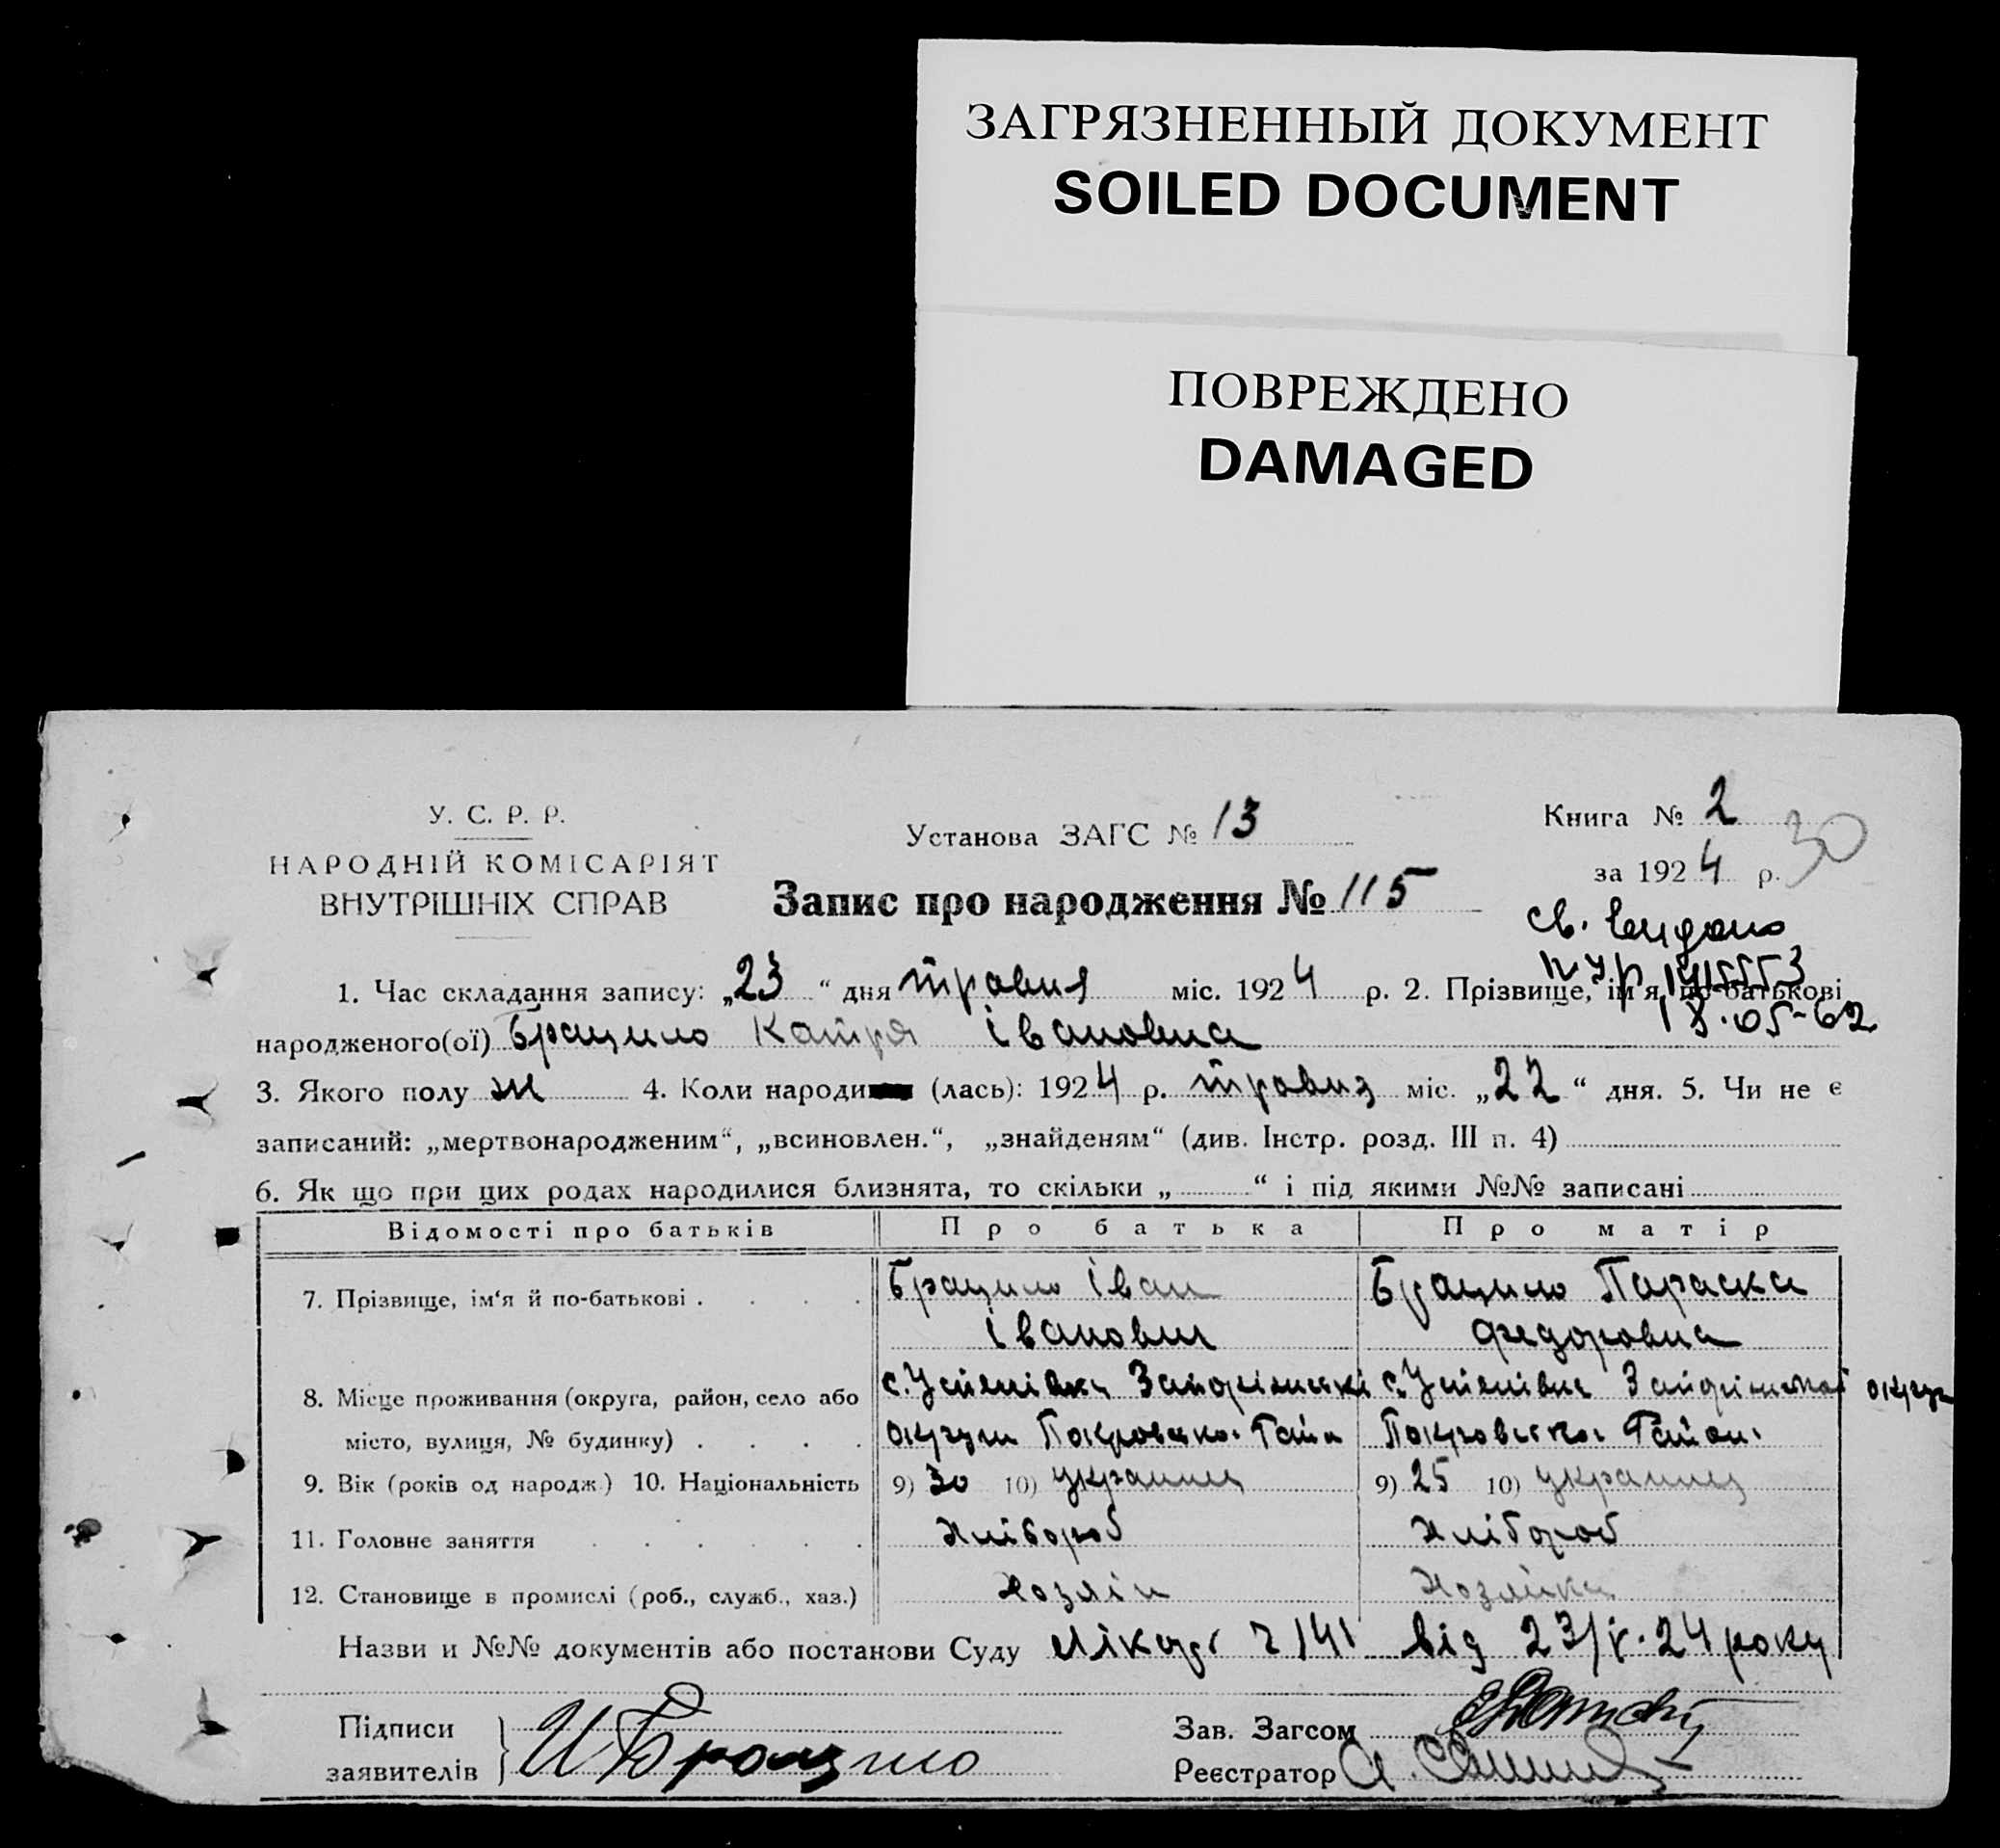 ЗАГРЯЗНЕННЫЙ ДОКУМЕНТ
SOILED DOCUMENT
ПОВРЕЖДЕНО
DAMAGED
У. С. Р. Р.
НАРОДНІЙ КОМІСАРІЯТ
ВНУТРІШНІХ СПРАВ
Установа ЗАГС № 13
Запис про народження № 115
Книга № 2
за 1924 р.
30
св. видано
18.05-62
1. Час складання запису: „23“ дня травня міс. 1924 р. 2. Прізвище, ім'я, по-батькові
народженого(ої) Брацило Катря Івановна
3. Якого полу ж 4. Коли народи (лась): 1924 р. травня міс. „22“ дня. 5. Чи не є
записаний: „мертвонародженим“, „всиновлен.“, „знайденям“ (див. Інстр. розд. III п. 4)
6. Як що при цих родах народилися близнята, то скільки „ “ і під якими №№ записані
Відомості про батьків Про батька Про матір
7. Прізвище, ім‘я й по-батькові . . . . Брацило Іван Брацило Параска
Івович Федоровна
8. Місце проживання (округа, район, село або с. Успенівка с. Успенівка округи
місто, вулиця, № будинку) . . . . округи Покровського Покровського Району
9. Вік (років од народж.) 10. Національність 9) 30 10) украинец 9) 25 10) украинец
11. Головне заняття . . . . . . Хлібороб Хлібороб
12. Становище в промислі (роб., служб., хаз.) Хозяїн Хозяйка
Назви и №№ документів або постанови Суду 141 від 23/V-24 року
Підписи
заявителів И Брацило
Зав. Загсом
Реєстратор